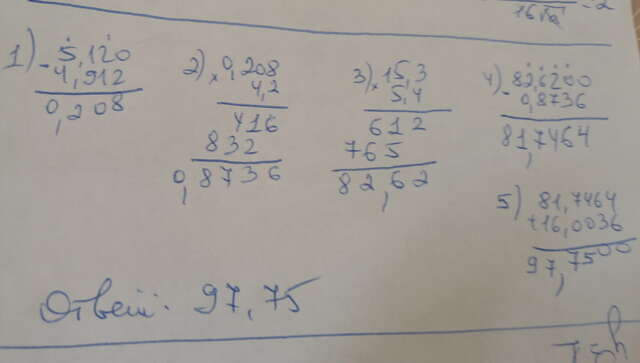 1) 5,120
- 4,912
0,208
2) 0,208
× 4,2
416
832
0,8736
3) 15,3
× 5,4
612
765
82,62
4) 82,6200
- 0,8736
81,7464
5) 81,7464
+16,0036
97,7500
Ответ: 97,75